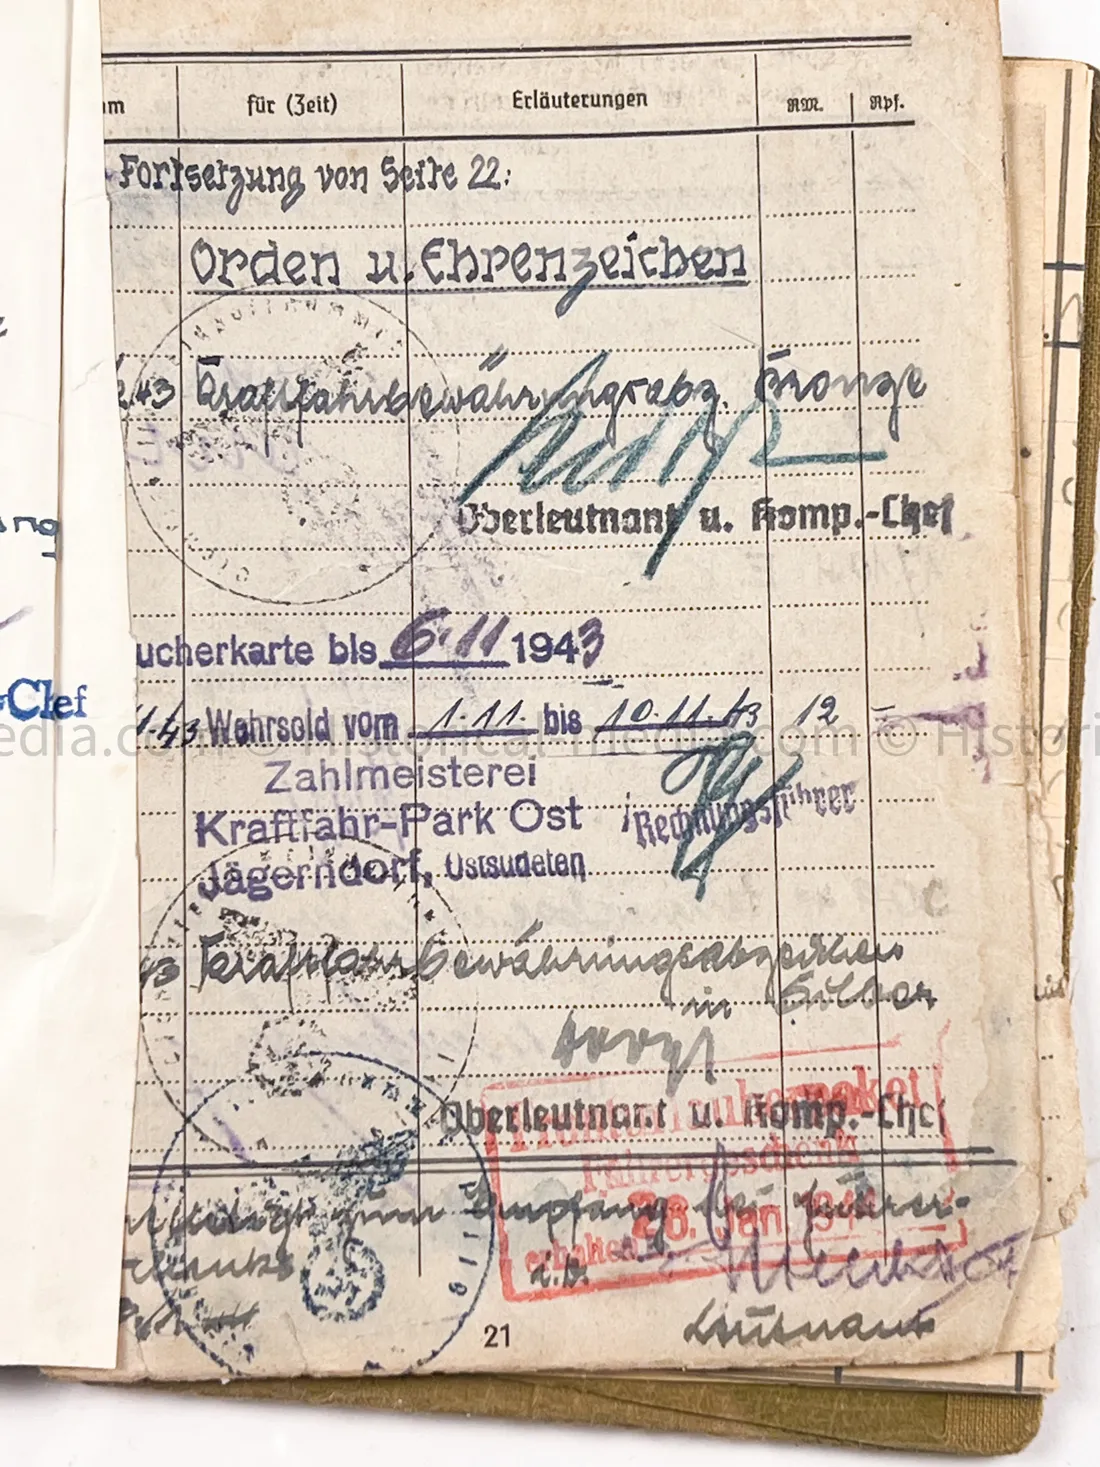 für (Zeit) Erläuterungen RM. Rpf.
Fortsetzung von Seite 22:
Orden u. Ehrenzeichen
43 Kraftfahrbewährungsabz. Bronze
Oberleutnant u. Komp.-Chef
ung
ucherkarte bis 6.11 1943
Clef
43 Wehrsold vom 1.11. bis 10.11.43 12 –
edia.com © Historical-media.com © Histori
Zahlmeisterei
Kraftfahr-Park Ost
Rechnungsführer
Jägerndorf, Ostsudeten
43 Kraftfahrbewährungsabzeichen
in Silber
Oberleutnant u. Komp.-Chef
Fronturlauberpaket
Führergeschenk
zum Empfang des Führer-
28. Jan. 194
erhalten
i.V.
Leutnant
21